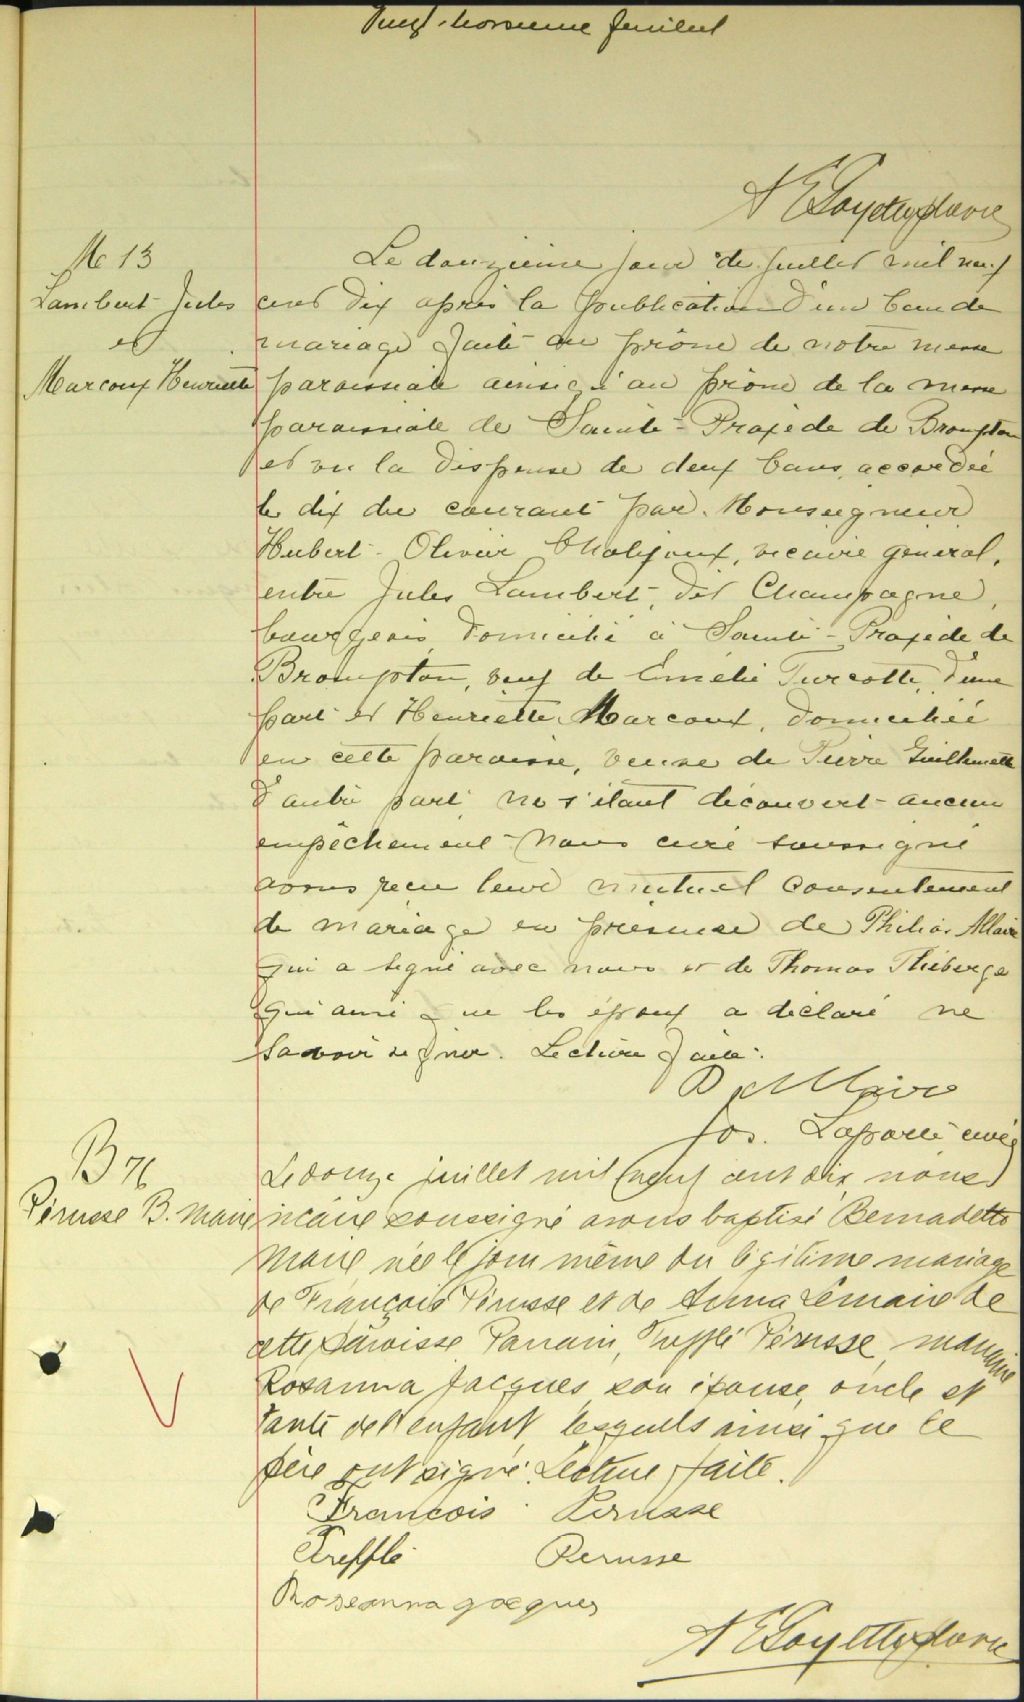 Vingt-troisième feuillet
N E Goyette, ptre vic
M 13
Lambert Jules
et
Marcoux Henriette
Le douzième jour de juillet mil neuf
cent dix après la publication d'un ban de
mariage faite au prône de notre messe
paroissiale ainsi qu'au prône de la messe
paroissiale de Sainte-Praxède de Brompton
et vu la dispense de deux bans accordée
le dix du courant par Monseigneur
Hubert-Olivier Chalifoux, vicaire général,
entre Jules Lambert, dit Champagne,
bourgeois, domicilié à Sainte-Praxède de
Brompton, veuf de Emélie Turcotte, d'une
part et Henriette Marcoux, domiciliée
en cette paroisse, veuve de Pierre Guillemette
d'autre part ne s'étant découvert aucun
empêchement Nous curé soussigné
avons reçu leur mutuel consentement
de mariage en présence de Philias Allaire
qui a signé avec nous et de Thomas Thiberge
qui ainsi que les époux a déclaré ne
savoir signer. Lecture faite.
P Allaire
Jos. Laporte curé
B 76
Pérusse B. Marie
Le douze juillet mil neuf cent dix nous
vicaire soussigné avons baptisé Bernadette
Marie née le jour même du légitime mariage
de François Pérusse et de Anna Lemaire de
cette paroisse Parrain, Trefflé Pérusse, marraine
Rosanna Jacques, son épouse, oncle et
tante de l'enfant, lesquels ainsi que le
père ont signé. Lecture faite.
Francois Perusse
Trefflé Perusse
Roseanna Jacques
N E Goyette, ptre vic